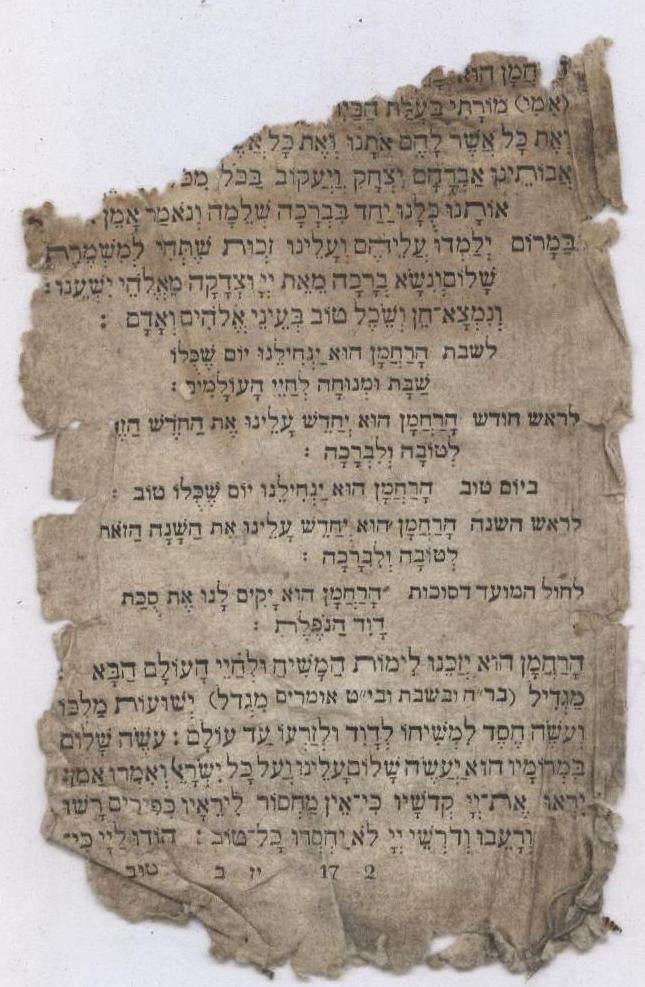 חֲמָן הוּא
(אִמִּי) מוֹרָתִי בַּעֲלַת הַבַּיִ
וְאֶת כָּל אֲשֶׁר לָהֶם אֹתָנוּ וְאֶת כָּל אֲ
אֲבוֹתֵינוּ אַבְרָהָם יִצְחָק וְיַעֲקוֹב בַּכֹּל מִכֹּ
אוֹתָנוּ כֻּלָּנוּ יַחַד בִּבְרָכָה שְׁלֵמָה וְנֹאמַר אָמֵן
בַּמָּרוֹם יְלַמְּדוּ עֲלֵיהֶם וְעָלֵינוּ זְכוּת שֶׁתְּהִי לְמִשְׁמֶרֶת
שָׁלוֹם וְנִשָּׂא בְרָכָה מֵאֵת יְיָ וּצְדָקָה מֵאֱלֹהֵי יִשְׁעֵנוּ:
וְנִמְצָא־חֵן וְשֵׂכֶל טוֹב בְּעֵינֵי אֱלֹהִים וְאָדָם :
לשבת הָרַחֲמָן הוּא יַנְחִילֵנוּ יוֹם שֶׁכֻּלּוֹ
שַׁבָּת וּמְנוּחָה לְחַיֵּי הָעוֹלָמִים :
לראש חודש הָרַחֲמָן הוּא יְחַדֵּשׁ עָלֵינוּ אֶת הַחֹדֶשׁ הַזֶּה
לְטוֹבָה וְלִבְרָכָה :
ביום טוב הָרַחֲמָן הוּא יַנְחִילֵנוּ יוֹם שֶׁכֻּלּוֹ טוֹב :
לראש השנה הָרַחֲמָן הוּא יְחַדֵּשׁ עָלֵינוּ אֶת הַשָּׁנָה הַזֹּאת
לְטוֹבָה וְלִבְרָכָה :
לחול המועד דסוכות הָרַחֲמָן הוּא יָקִים לָנוּ אֶת סֻכַּת
דָּוִד הַנֹּפֶלֶת :
הָרַחֲמָן הוּא יְזַכֵּנוּ לִימוֹת הַמָּשִׁיחַ וּלְחַיֵּי הָעוֹלָם הַבָּא :
מַגְדִּיל (בר״ח ובשבת ובי״ט אומרים מִגְדֹּל) יְשׁוּעוֹת מַלְכּוֹ
וְעֹשֶׂה חֶסֶד לִמְשִׁיחוֹ לְדָוִד וּלְזַרְעוֹ עַד עוֹלָם : עֹשֶׂה שָׁלוֹם
בִּמְרוֹמָיו הוּא יַעֲשֶׂה שָׁלוֹם עָלֵינוּ וְעַל כָּל יִשְׂרָאֵל וְאִמְרוּ אָמֵן:
יְראוּ אֶת־יְיָ קְדֹשָׁיו כִּי־אֵין מַחְסוֹר לִירֵאָיו כְּפִירִים רָשׁוּ
וְרָעֵבוּ וְדֹרְשֵׁי יְיָ לֹא יַחְסְרוּ כָל־טוֹב : הוֹדוּ לַיְיָ כִּי־
2 17 יז ב טוב